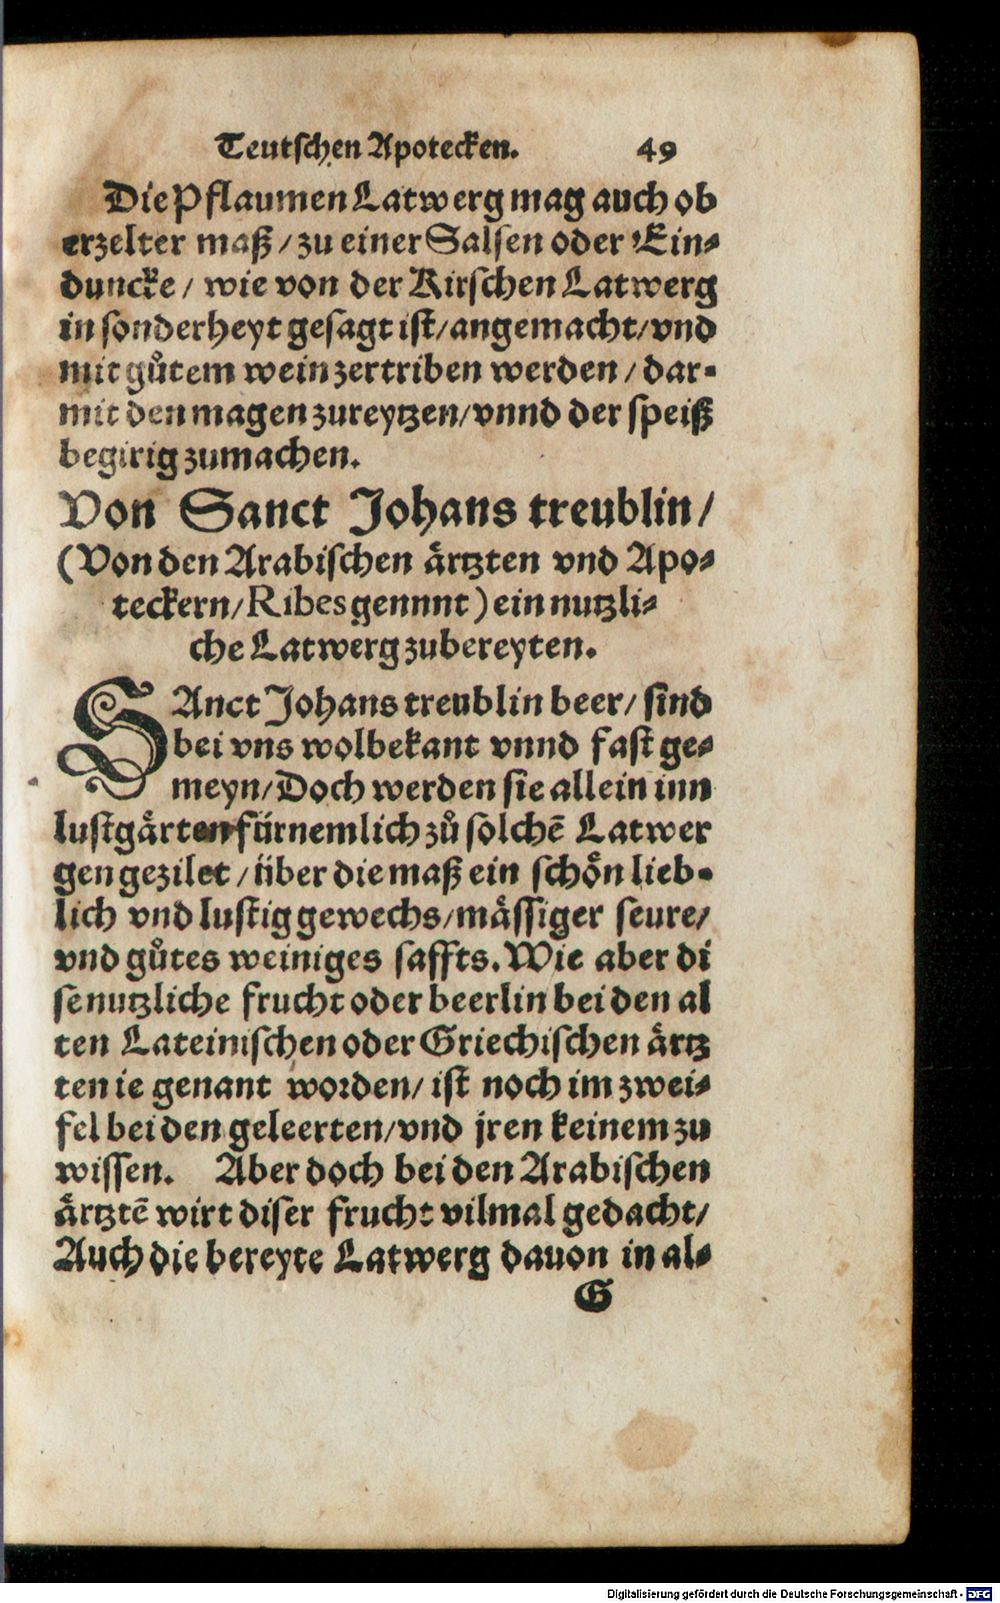 Teutschen Apotecken. 49
Die Pflaumen Latwerg mag auch ob
erzelter maß / zu einer Salsen oder Ein⸗
duncke / wie von der Kirschen Latwerg
in sonderheyt gesagt ist / angemacht / vnd
mit gůtem wein zertriben werden / dar⸗
mit den magen zureytzen / vnnd der speiß
begirig zumachen.
Von Sanct Johans treublin /
(Von den Arabischen ärtzten vnd Apo⸗
teckern / Ribes gennnt) ein nutzli⸗
che Latwerg zubereyten.
SAnct Johans treublin beer / sind
bei vns wolbekant vnnd fast ge⸗
meyn / Doch werden sie allein inn
lustgärten fürnemlich zů solchẽ Latwer
gen gezilet / über die maß ein schön lieb⸗
lich vnd lustig gewechs / mässiger seure /
vnd gůtes weiniges saffts. Wie aber di
se nutzliche frucht oder beerlin bei den al
ten Lateinischen oder Griechischen ärtz
ten ie genant worden / ist noch im zwei⸗
fel bei den geleerten / vnd jren keinem zu
wissen. Aber doch bei den Arabischen
ärtztẽ wirt diser frucht vilmal gedacht /
Auch die bereyte Latwerg dauon in al⸗
G
Digitalisierung gefördert durch die Deutsche Forschungsgemeinschaft - DFG